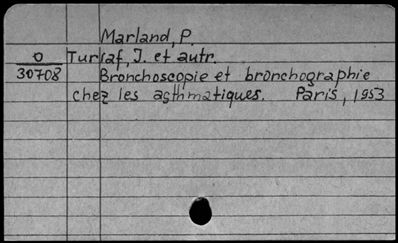 Marland, P.
O Turiaf, J. et autr.
30708 Bronchoscopie et bronchographie
chez les asthmatiques. Paris, 1953